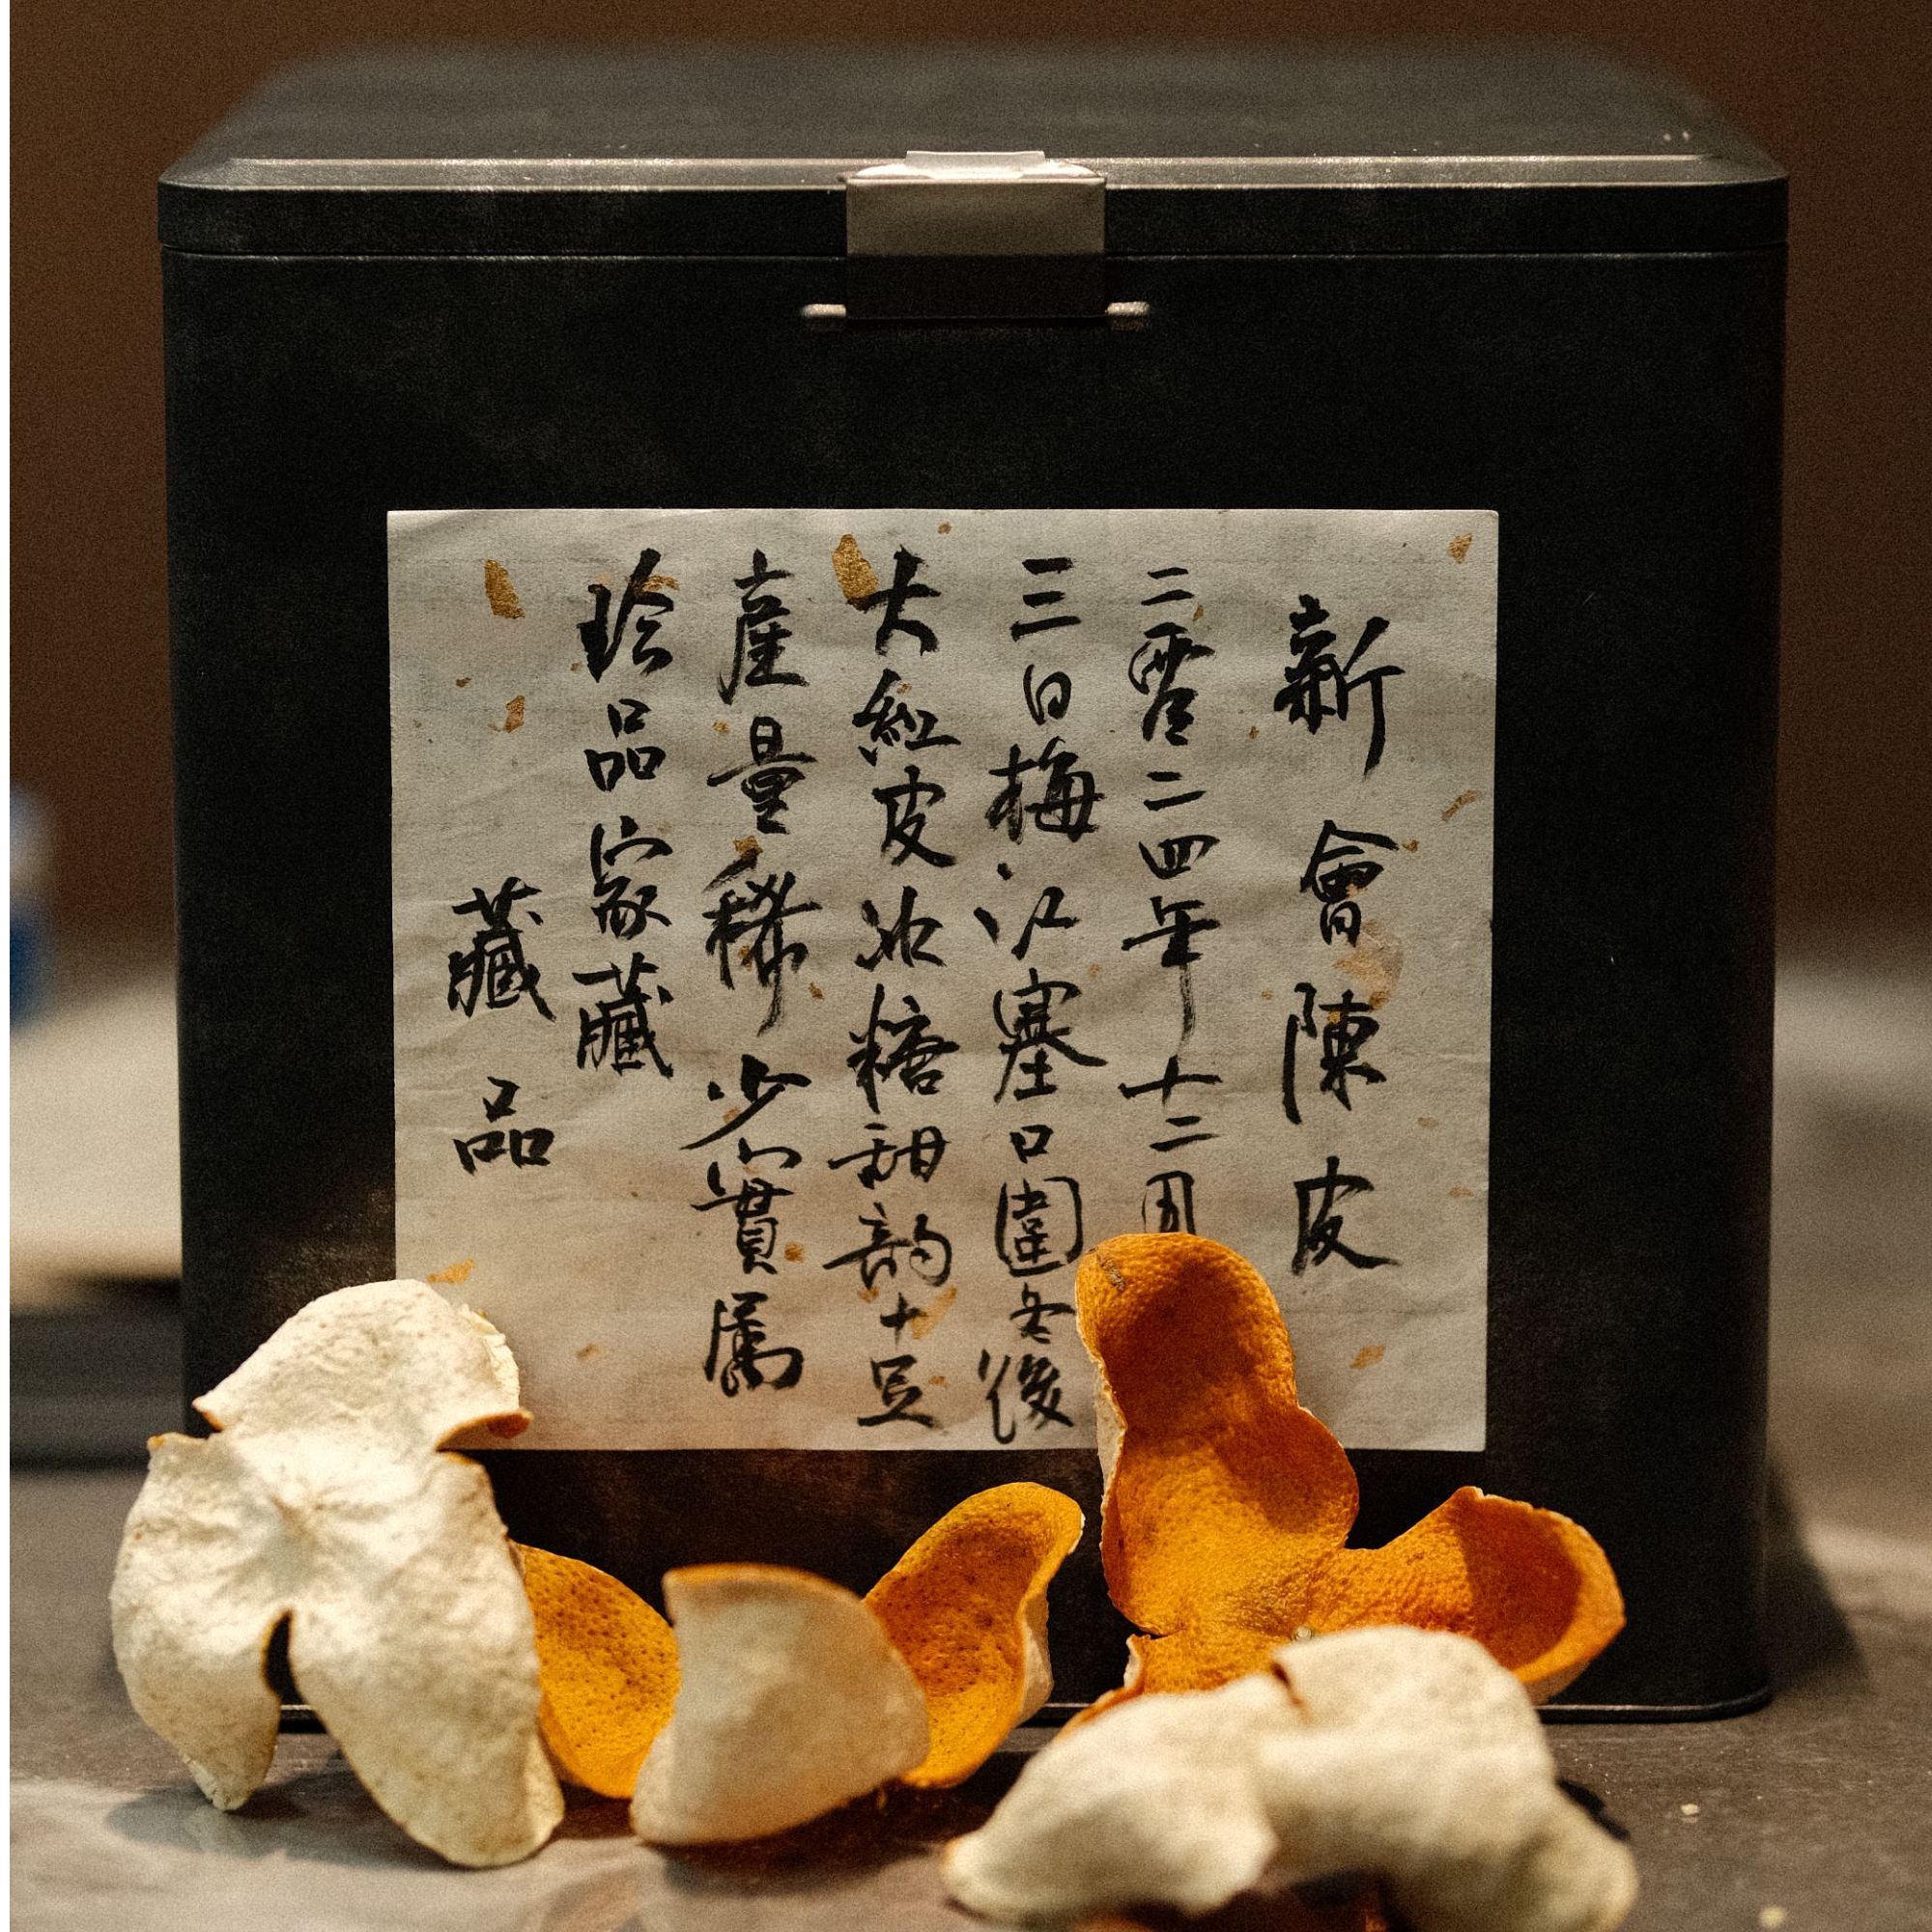 新會陳皮
二零二四年十二月
三日梅江塞口圍冬後
大紅皮冰糖甜韵十足
産量稀少實屬
珍品家藏
藏品